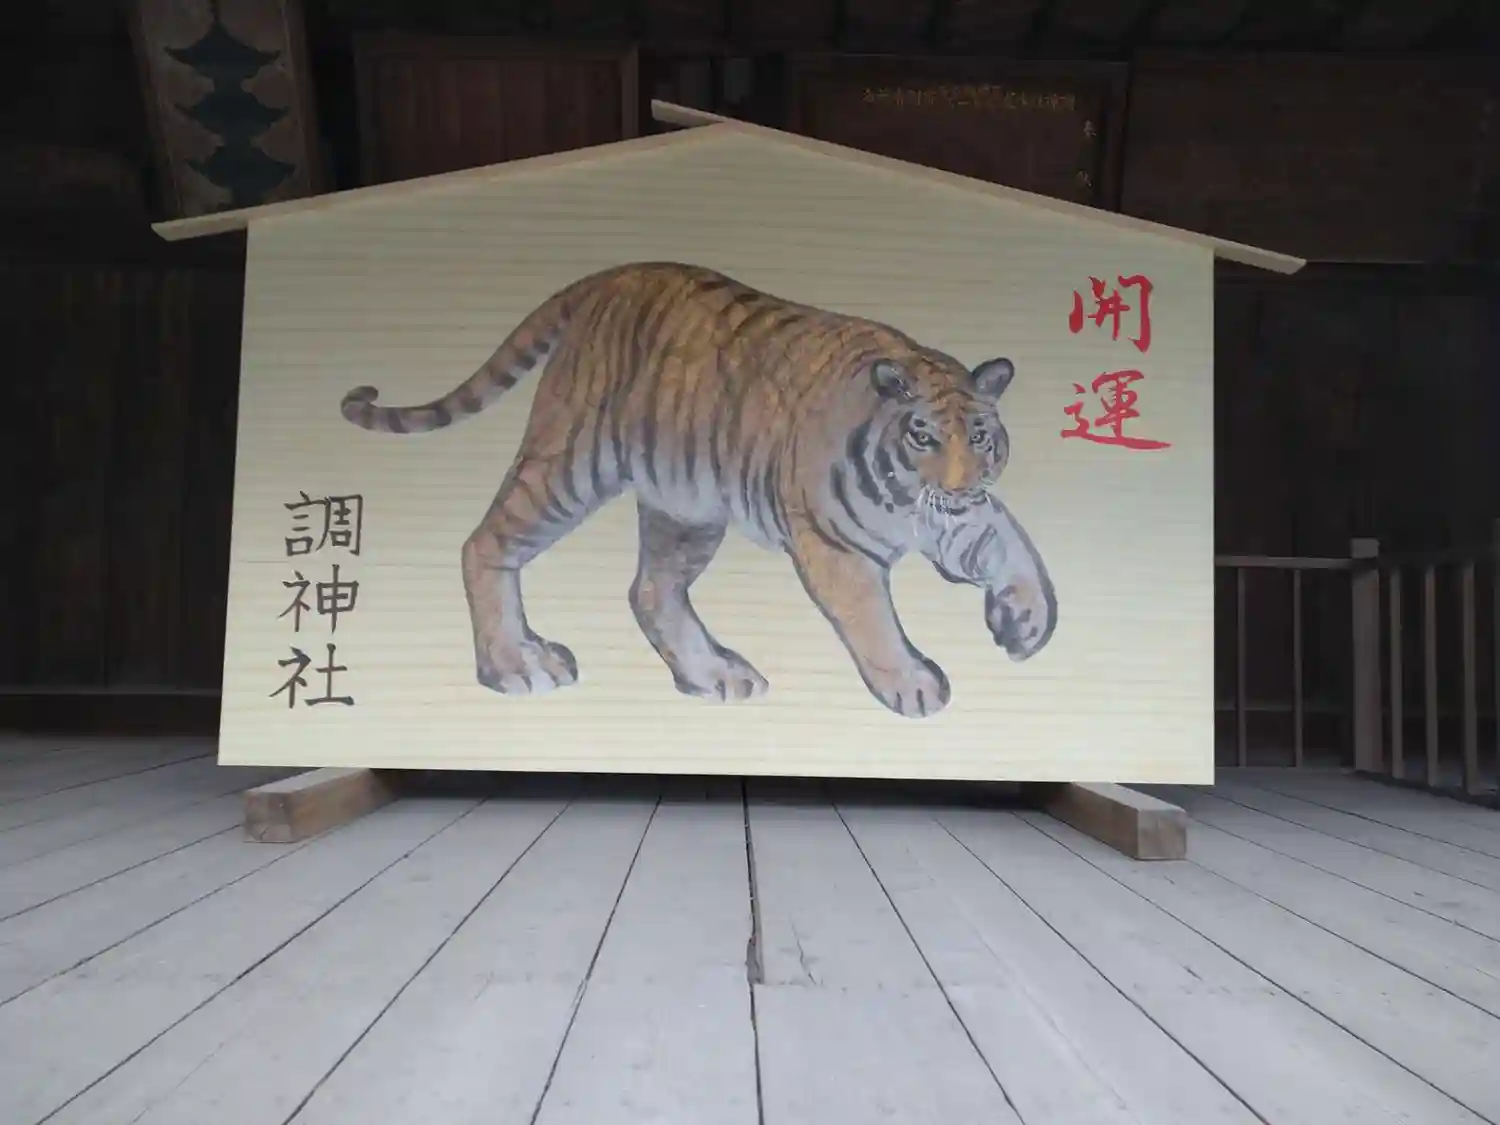 開運
調神社
奉